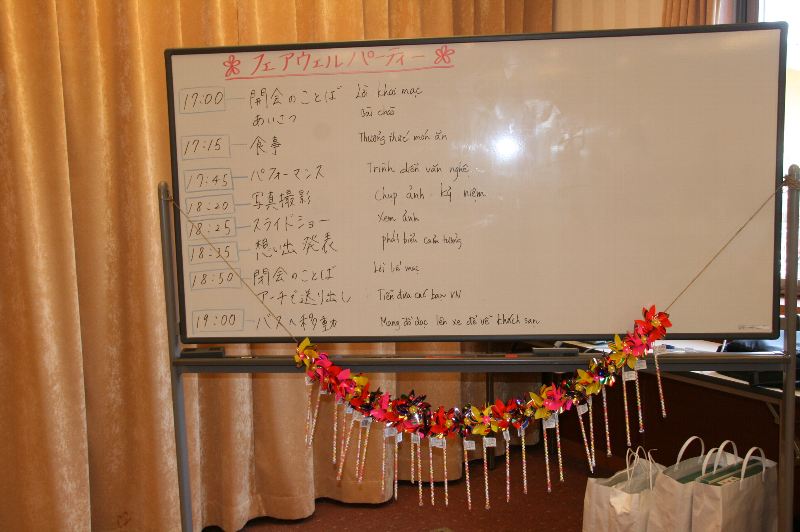 フェアウェルパーティー
17:00 開会のことば Lời khai mạc
あいさつ Bài chào
17:15 食事 Thưởng thức món ăn
17:45 パフォーマンス Trình diễn văn nghệ
18:20 写真撮影 Chụp ảnh kỷ niệm
18:25 スライドショー Xem ảnh
18:35 想い出発表 phát biểu cảm tưởng
18:50 閉会のことば Lời bế mạc
アーチで送り出し Tiễn đưa các bạn VN
19:00 バスへ移動 Mang đồ đạc lên xe để về khách sạn